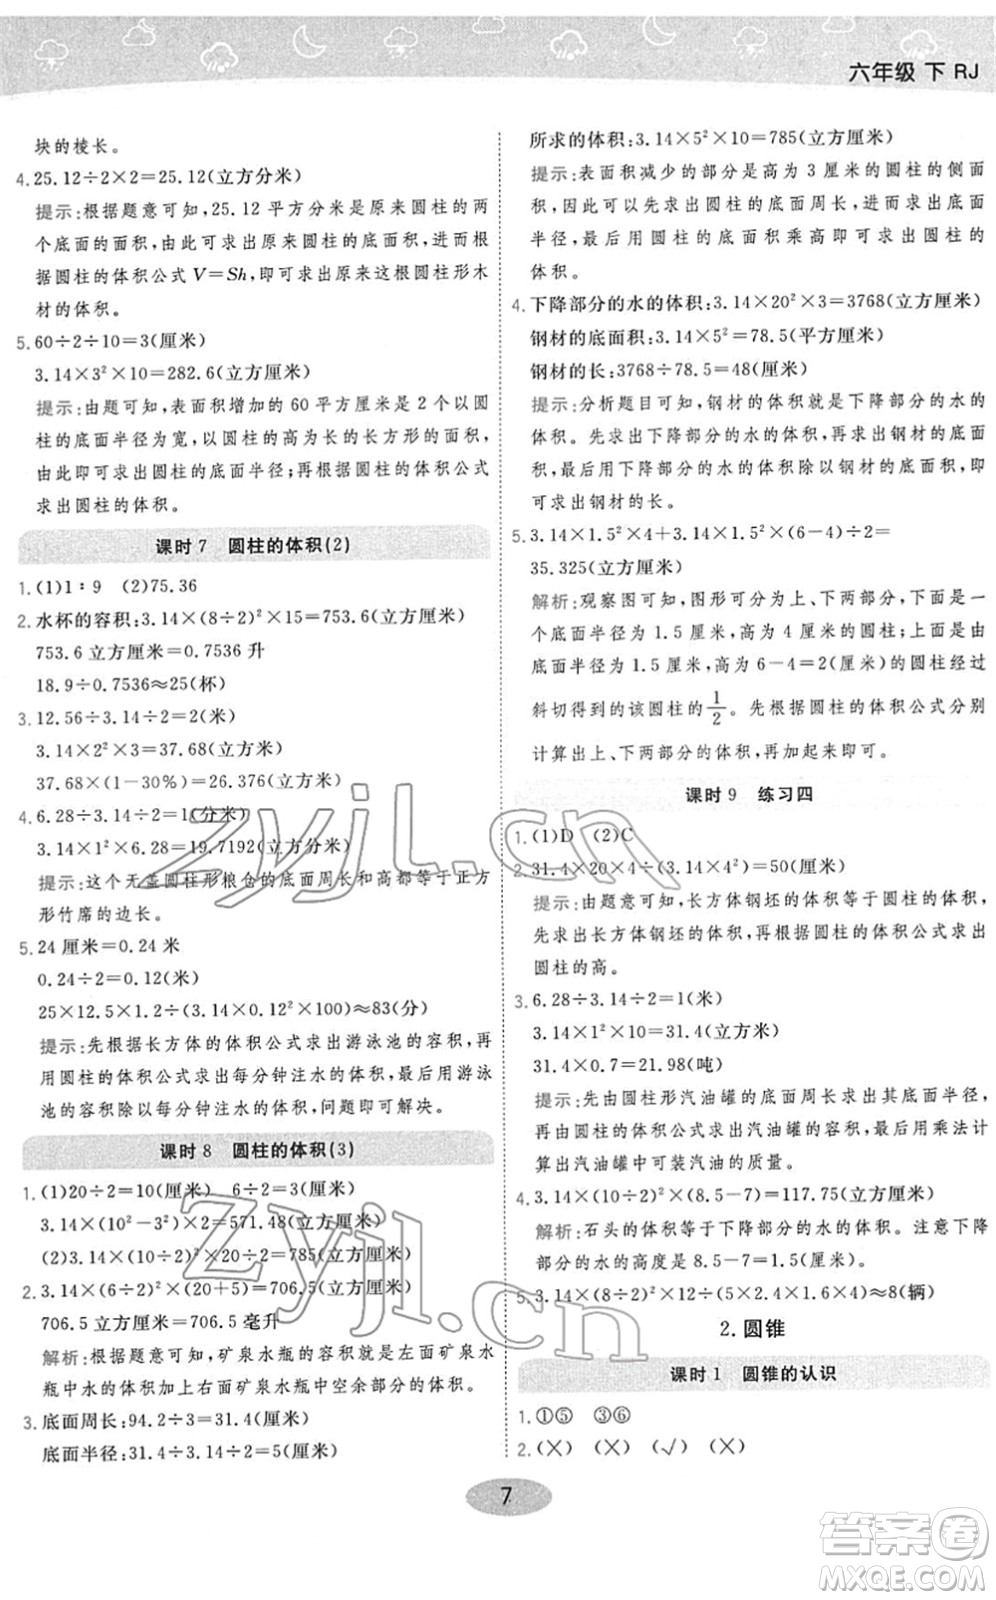 六年级 下 RJ
块的棱长。
4. 25.12÷2×2=25.12(立方分米)
提示:根据题意可知,25.12 平方分米是原来圆柱的两
个底面的面积,由此可求出原来圆柱的底面积,进而根
据圆柱的体积公式 V=Sh,即可求出原来这根圆柱形木
材的体积。
5. 60÷2÷10=3(厘米)
3.14×3²×10=282.6(立方厘米)
提示:由题可知,表面积增加的 60 平方厘米是 2 个以圆
柱的底面半径为宽,以圆柱的高为长的长方形的面积,
由此即可求出圆柱的底面半径;再根据圆柱的体积公式
求出圆柱的体积。
课时 7 圆柱的体积(2)
1. (1)1∶9 (2)75.36
2. 水杯的容积:3.14×(8÷2)²×15=753.6(立方厘米)
753.6 立方厘米=0.7536 升
18.9÷0.7536≈25(杯)
3. 12.56÷3.14÷2=2(米)
3.14×2²×3=37.68(立方米)
37.68×(1-30%)=26.376(立方米)
4. 6.28÷3.14÷2=1(分米)
3.14×1²×6.28=19.7192(立方分米)
提示:这个无盖圆柱形粮仓的底面周长和高都等于正方
形竹席的边长。
5. 24 厘米=0.24 米
0.24÷2=0.12(米)
25×12.5×1.2÷(3.14×0.12²×100)≈83(分)
提示:先根据长方体的体积公式求出游泳池的容积,再
用圆柱的体积公式求出每分钟注水的体积,最后用游泳
池的容积除以每分钟注水的体积,问题即可解决。
课时 8 圆柱的体积(3)
1. (1)20÷2=10(厘米) 6÷2=3(厘米)
3.14×(10²-3²)×2=571.48(立方厘米)
(2)3.14×(10÷2)²×20÷2=785(立方厘米)
2. 3.14×(6÷2)²×(20+5)=706.5(立方厘米)
706.5 立方厘米=706.5 毫升
解析:根据题意可知,矿泉水瓶的容积就是左面矿泉水
瓶中水的体积加上右面矿泉水瓶中空余部分的体积。
3. 底面周长:94.2÷3=31.4(厘米)
底面半径:31.4÷3.14÷2=5(厘米)
所求的体积:3.14×5²×10=785(立方厘米)
提示:表面积减少的部分是高为 3 厘米的圆柱的侧面
积,因此可以先求出圆柱的底面周长,进而求出底面
半径,最后用圆柱的底面积乘高即可求出圆柱的
体积。
4. 下降部分的水的体积:3.14×20²×3=3768(立方厘米)
钢材的底面积:3.14×5²=78.5(平方厘米)
钢材的长:3768÷78.5=48(厘米)
提示:分析题目可知,钢材的体积就是下降部分的水的
体积。先求出下降部分的水的体积,再求出钢材的底面
积,最后用下降部分的水的体积除以钢材的底面积,即
可求出钢材的长。
5. 3.14×1.5²×4+3.14×1.5²×(6-4)÷2=
35.325(立方厘米)
解析:观察图可知,图形可分为上、下两部分,下面是一
个底面半径为 1.5 厘米,高为 4 厘米的圆柱;上面是由
底面半径为 1.5 厘米,高为 6-4=2(厘米)的圆柱经过
斜切得到的该圆柱的1/2。先根据圆柱的体积公式分别
计算出上、下两部分的体积,再加起来即可。
课时 9 练习四
1. (1)D (2)C
2. 31.4×20×4÷(3.14×4²)=50(厘米)
提示:由题意可知,长方体钢坯的体积等于圆柱的体积,
先求出长方体钢坯的体积,再根据圆柱的体积公式求出
圆柱的高。
3. 6.28÷3.14÷2=1(米)
3.14×1²×10=31.4(立方米)
31.4×0.7=21.98(吨)
提示:先由圆柱形汽油罐的底面周长求出底面半径,
再由圆柱的体积公式求出汽油罐的容积,最后用乘法计
算出汽油罐中可装汽油的质量。
4. 3.14×(10÷2)²×(8.5-7)=117.75(立方厘米)
解析:石头的体积等于下降部分的水的体积。注意下降
部分的水的高度是 8.5-7=1.5(厘米)。
5. 3.14×(8÷2)²×12÷(5×2.4×1.6×4)≈8(辆)
2. 圆锥
课时 1 圆锥的认识
1. ①⑤ ③⑥
2. (×) (×) (√) (×)
7
答案圈
zyjl.cn
zyjl.cn
MXQE.COM